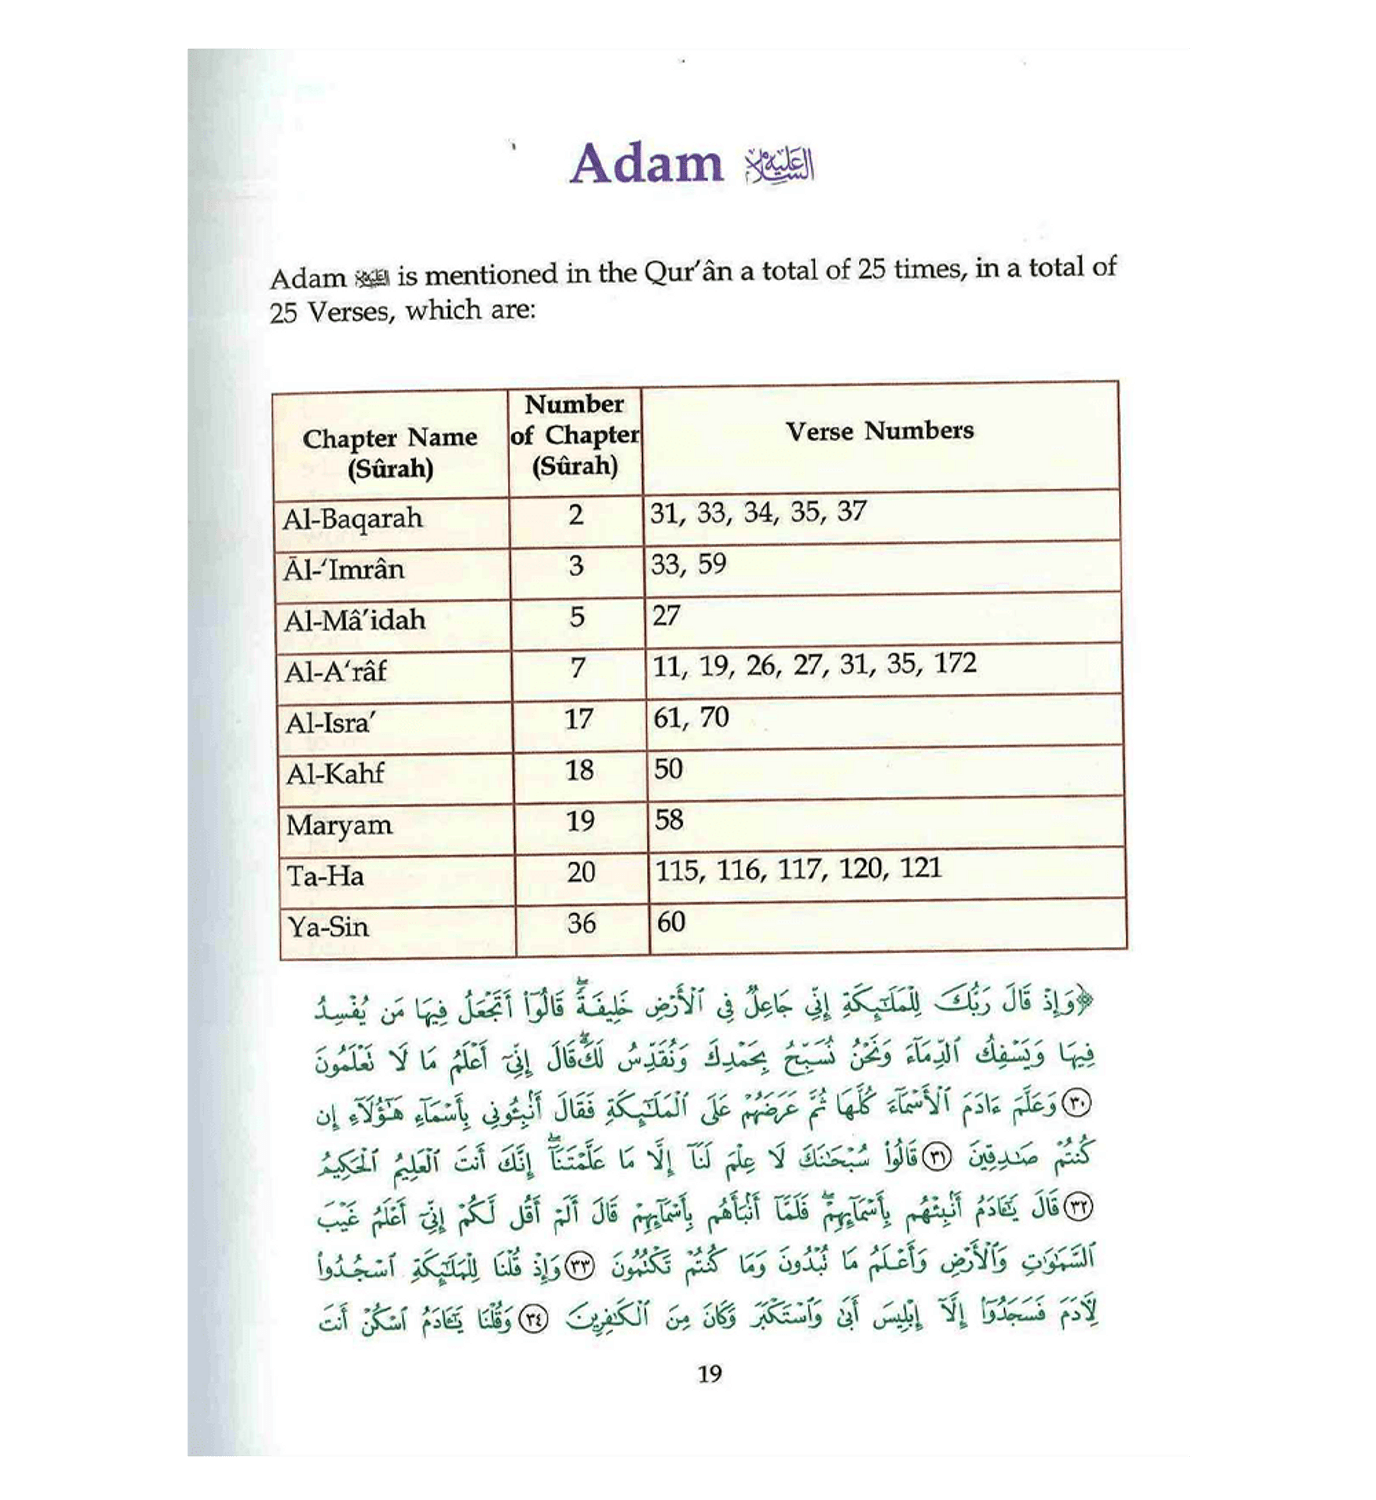 Adam عليه السلام
Adam عليه السلام is mentioned in the Qur’ân a total of 25 times, in a total of
25 Verses, which are:
Chapter Name (Sûrah) Number of Chapter (Sûrah) Verse Numbers
Al-Baqarah 2 31, 33, 34, 35, 37
Āl-‘Imrân 3 33, 59
Al-Mâ’idah 5 27
Al-A‘râf 7 11, 19, 26, 27, 31, 35, 172
Al-Isra’ 17 61, 70
Al-Kahf 18 50
Maryam 19 58
Ta-Ha 20 115, 116, 117, 120, 121
Ya-Sin 36 60
﴿وَإِذْ قَالَ رَبُّكَ لِلْمَلَٰٓئِكَةِ إِنِّي جَاعِلٌ فِي ٱلْأَرْضِ خَلِيفَةًۖ قَالُوٓا۟ أَتَجْعَلُ فِيهَا مَن يُفْسِدُ
فِيهَا وَيَسْفِكُ ٱلدِّمَآءَ وَنَحْنُ نُسَبِّحُ بِحَمْدِكَ وَنُقَدِّسُ لَكَۖ قَالَ إِنِّيٓ أَعْلَمُ مَا لَا تَعْلَمُونَ
٣٠ وَعَلَّمَ ءَادَمَ ٱلْأَسْمَآءَ كُلَّهَا ثُمَّ عَرَضَهُمْ عَلَى ٱلْمَلَٰٓئِكَةِ فَقَالَ أَنۢبِـُٔونِي بِأَسْمَآءِ هَٰٓؤُلَآءِ إِن
كُنتُمْ صَٰدِقِينَ ٣١ قَالُوا۟ سُبْحَٰنَكَ لَا عِلْمَ لَنَآ إِلَّا مَا عَلَّمْتَنَآۖ إِنَّكَ أَنتَ ٱلْعَلِيمُ ٱلْحَكِيمُ
٣٢ قَالَ يَٰٓـَٔادَمُ أَنۢبِئْهُم بِأَسْمَآئِهِمْۖ فَلَمَّآ أَنۢبَأَهُم بِأَسْمَآئِهِمْ قَالَ أَلَمْ أَقُل لَّكُمْ إِنِّيٓ أَعْلَمُ غَيْبَ
ٱلسَّمَٰوَٰتِ وَٱلْأَرْضِ وَأَعْلَمُ مَا تُبْدُونَ وَمَا كُنتُمْ تَكْتُمُونَ ٣٣ وَإِذْ قُلْنَا لِلْمَلَٰٓئِكَةِ ٱسْجُدُوا۟
لِـَٔادَمَ فَسَجَدُوٓا۟ إِلَّآ إِبْلِيسَ أَبَىٰ وَٱسْتَكْبَرَ وَكَانَ مِنَ ٱلْكَٰفِرِينَ ٣٤ وَقُلْنَا يَٰٓـَٔادَمُ ٱسْكُنْ أَنتَ
19